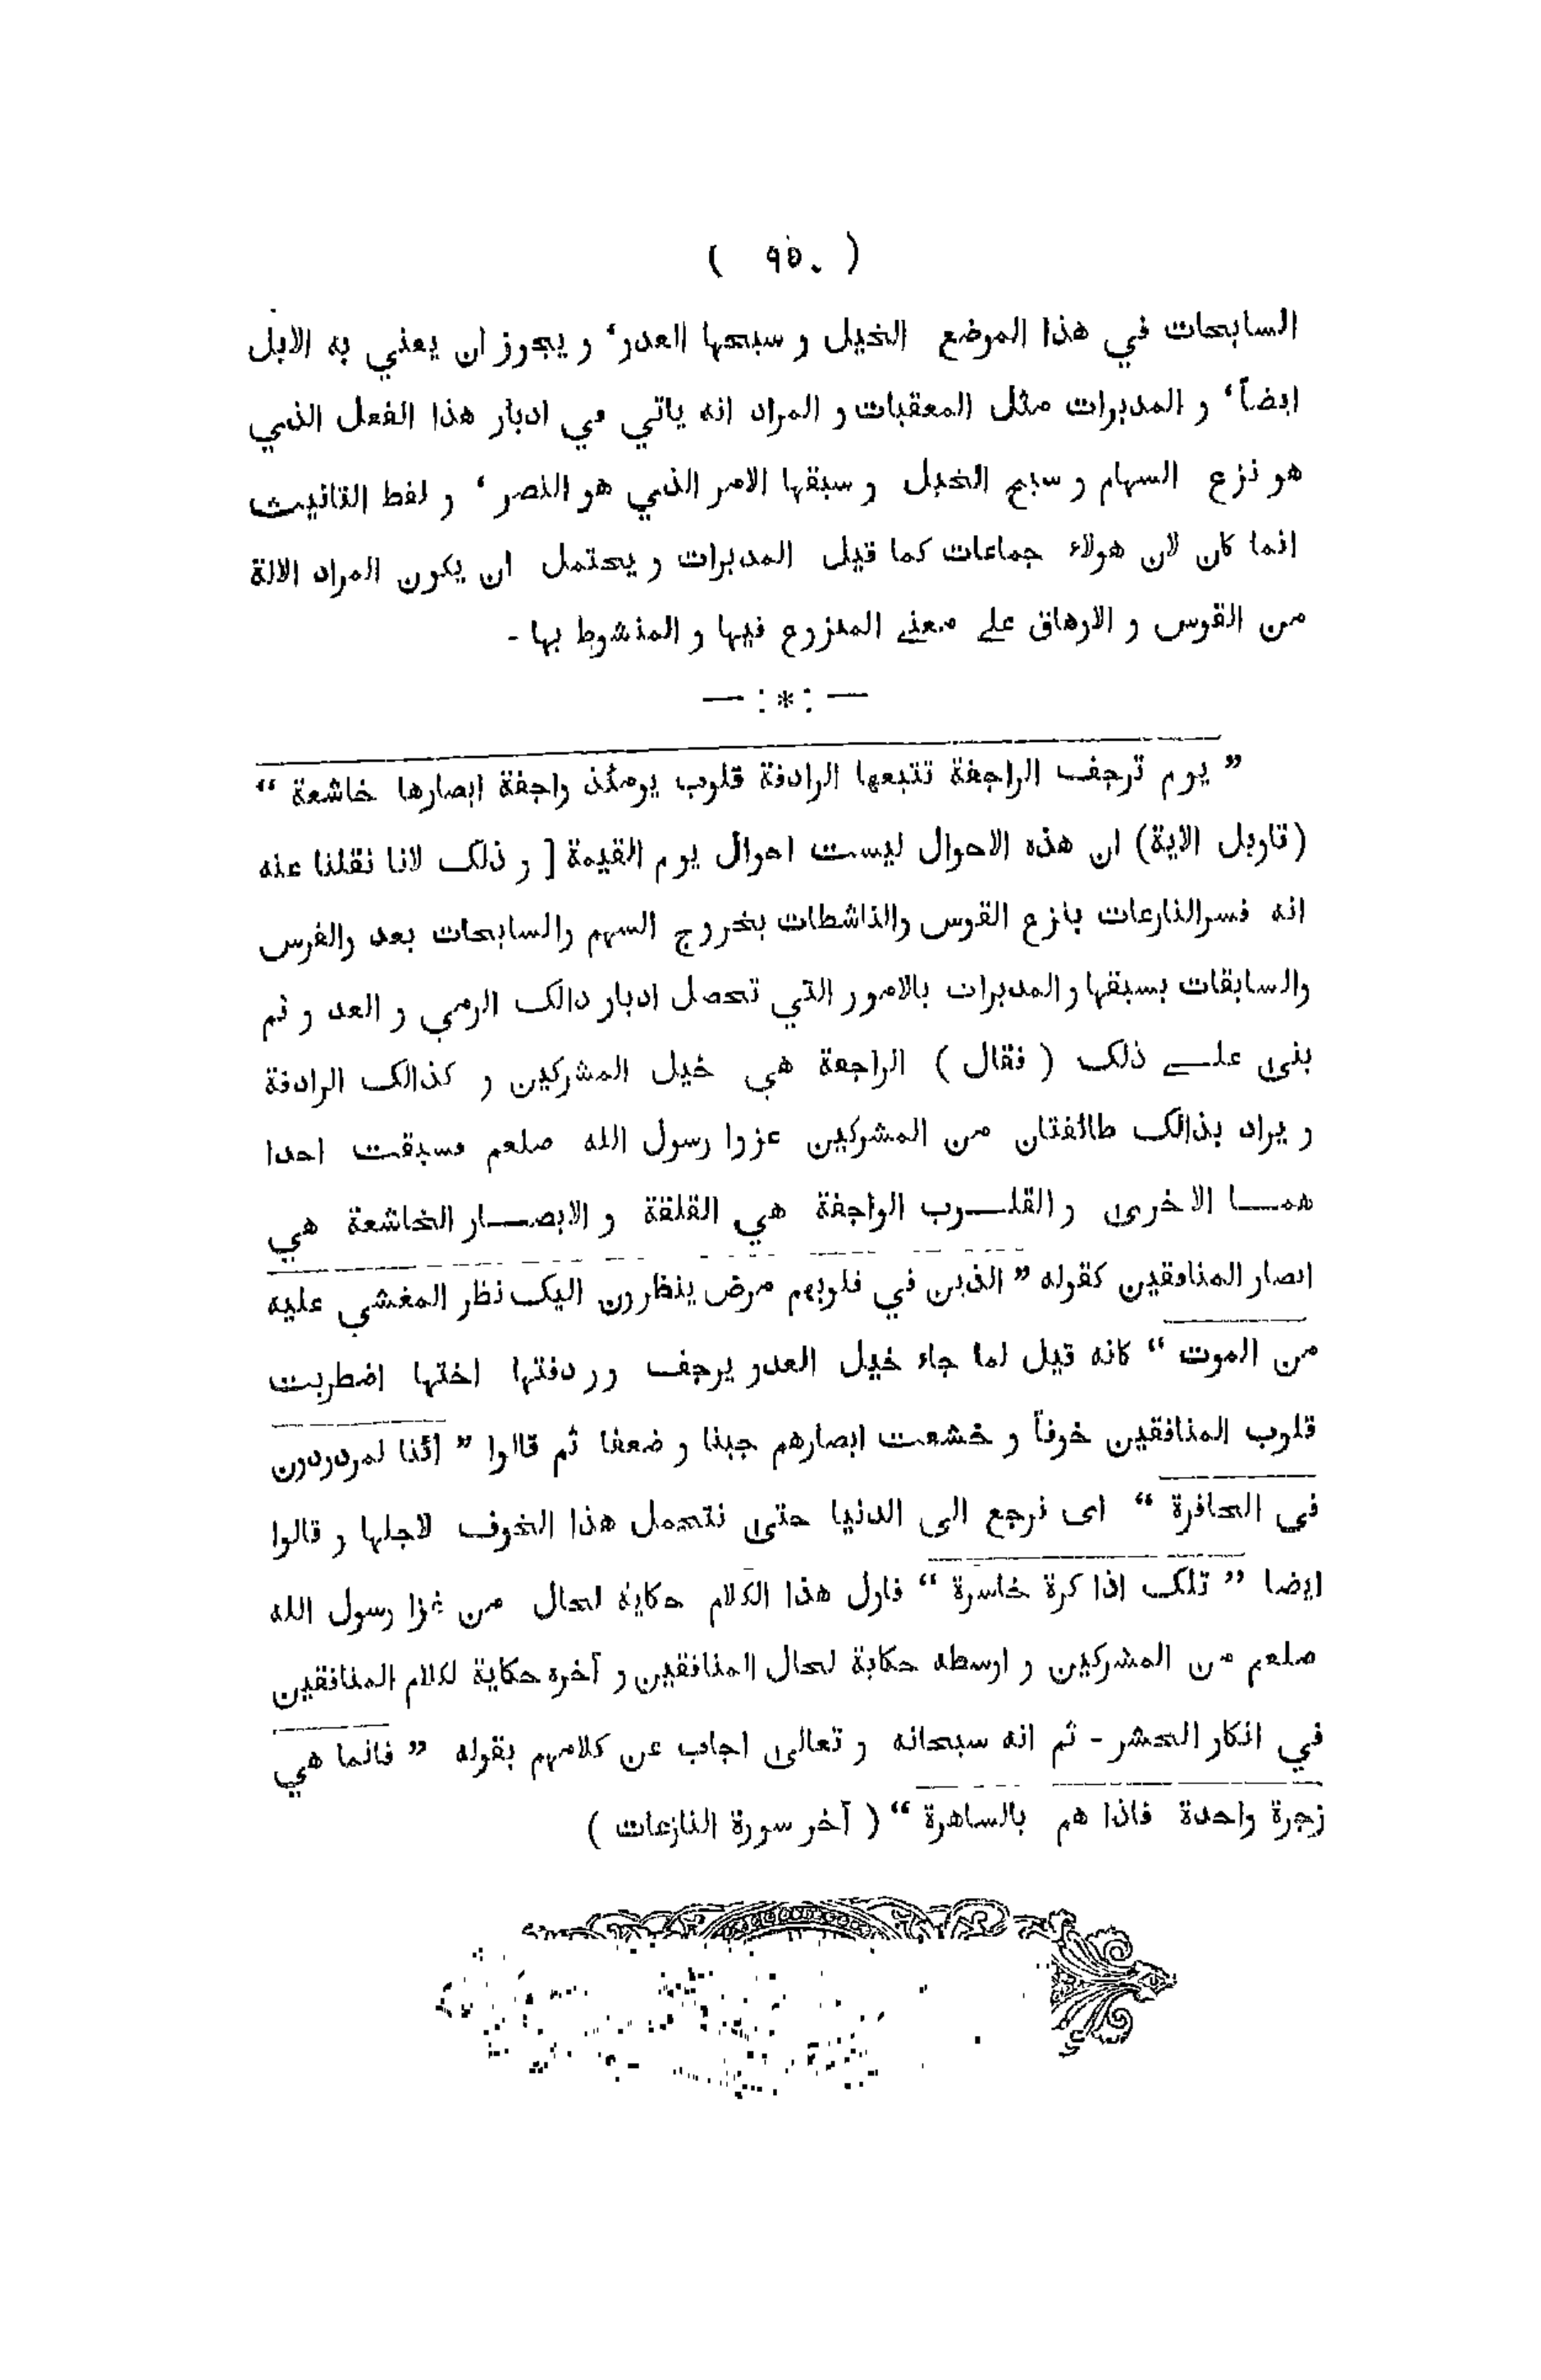 ( ٩٥٠ )
السابحات في هذا الموضع الخيل و سبحها العدو، و يجوز ان يعني به الابل
ايضاً، و المدبرات مثل المعقبات و المراد انه ياتي في ادبار هذا الفعل الذي
هو نزع السهام و سبح الخيل و سبقها الامر الذي هو النصر، و لفظ التانيث
انما كان لان هولاء جماعات كما قيل المدبرات و يحتمل ان يكون المراد الالة
من القوس و الارهاق على معنى المنزوع فيها و المنشوط بها -
— : * : —
” يوم ترجف الراجفة تتبعها الرادفة قلوب يومئذ واجفة ابصارها خاشعة “
(تاويل الاية) ان هذه الاحوال ليست احوال يوم القيمة [ و ذلك لانا نقلنا عنه
انه فسر النازعات بنزع القوس والناشطات بخروج السهم والسابحات بعد والفرس
والسابقات بسبقها والمدبرات بالامور التي تحصل ادبار ذالك الرمي و العد و ثم
بنى على ذلك ( فقال ) الراجفة هي خيل المشركين و كذالك الرادفة
و يراد بذالك طائفتان من المشركين غزوا رسول الله صلعم فسبقت احدا
هما الاخرى و القلوب الواجفة هي القلقة و الابصار الخاشعة هي
ابصار المنافقين كقوله ” الذين في قلوبهم مرض ينظرون اليك نظر المغشي عليه
من الموت “ كانه قيل لما جاء خيل العدو يرجف و ردفتها اختها اضطربت
قلوب المنافقين خوفاً و خشعت ابصارهم جبنا و ضعفا ثم قالوا ” أئنا لمردودون
فى الحافرة “ اى نرجع الى الدنيا حتى نتحمل هذا الخوف لاجلها و قالوا
ايضا ” تلك اذا كرة خاسرة “ فاول هذا الكلام حكاية لحال من غزا رسول الله
صلعم من المشركين و اوسطه حكاية لحال المنافقين و آخره حكاية لكلام المنافقين
في انكار الحشر - ثم انه سبحانه و تعالى اجاب عن كلامهم بقوله ” فانما هي
زجرة واحدة فاذا هم بالساهرة “ ( آخر سورة النازعات )